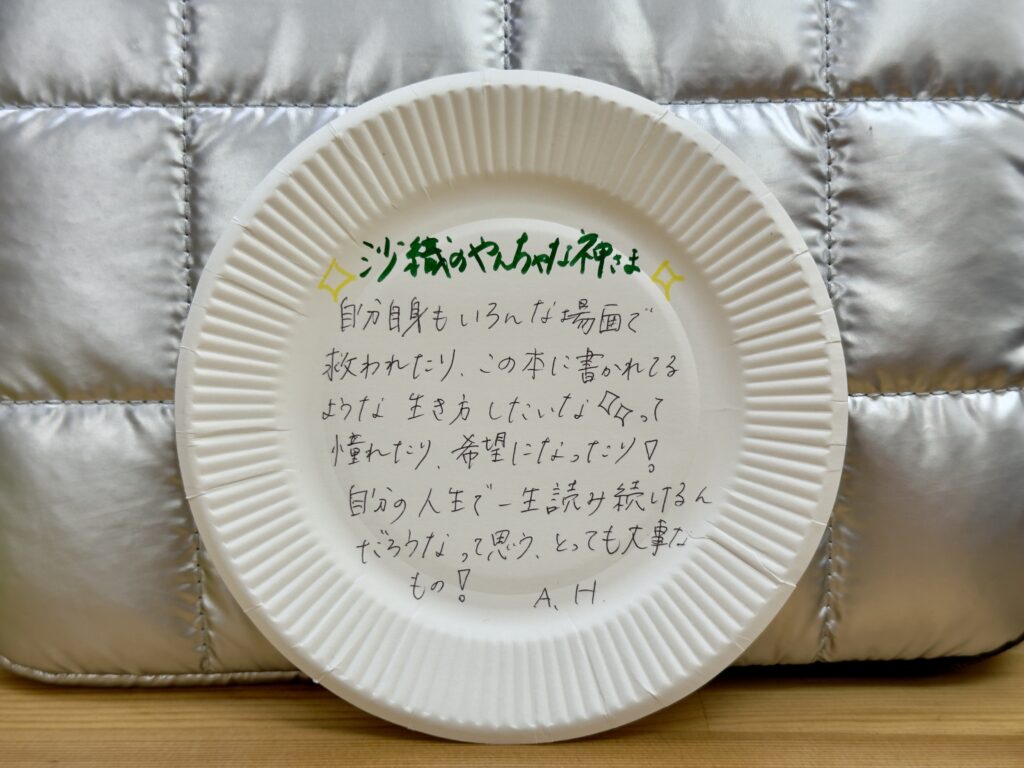 沙織のやんちゃな神さま
自分自身もいろんな場面で
救われたり、この本に書かれてる
ような 生き方 したいな✧✧って
憧れたり、希望になったり!
自分の人生で一生読み続けるん
だろうなって思う、とっても大事な
もの!
A、H.